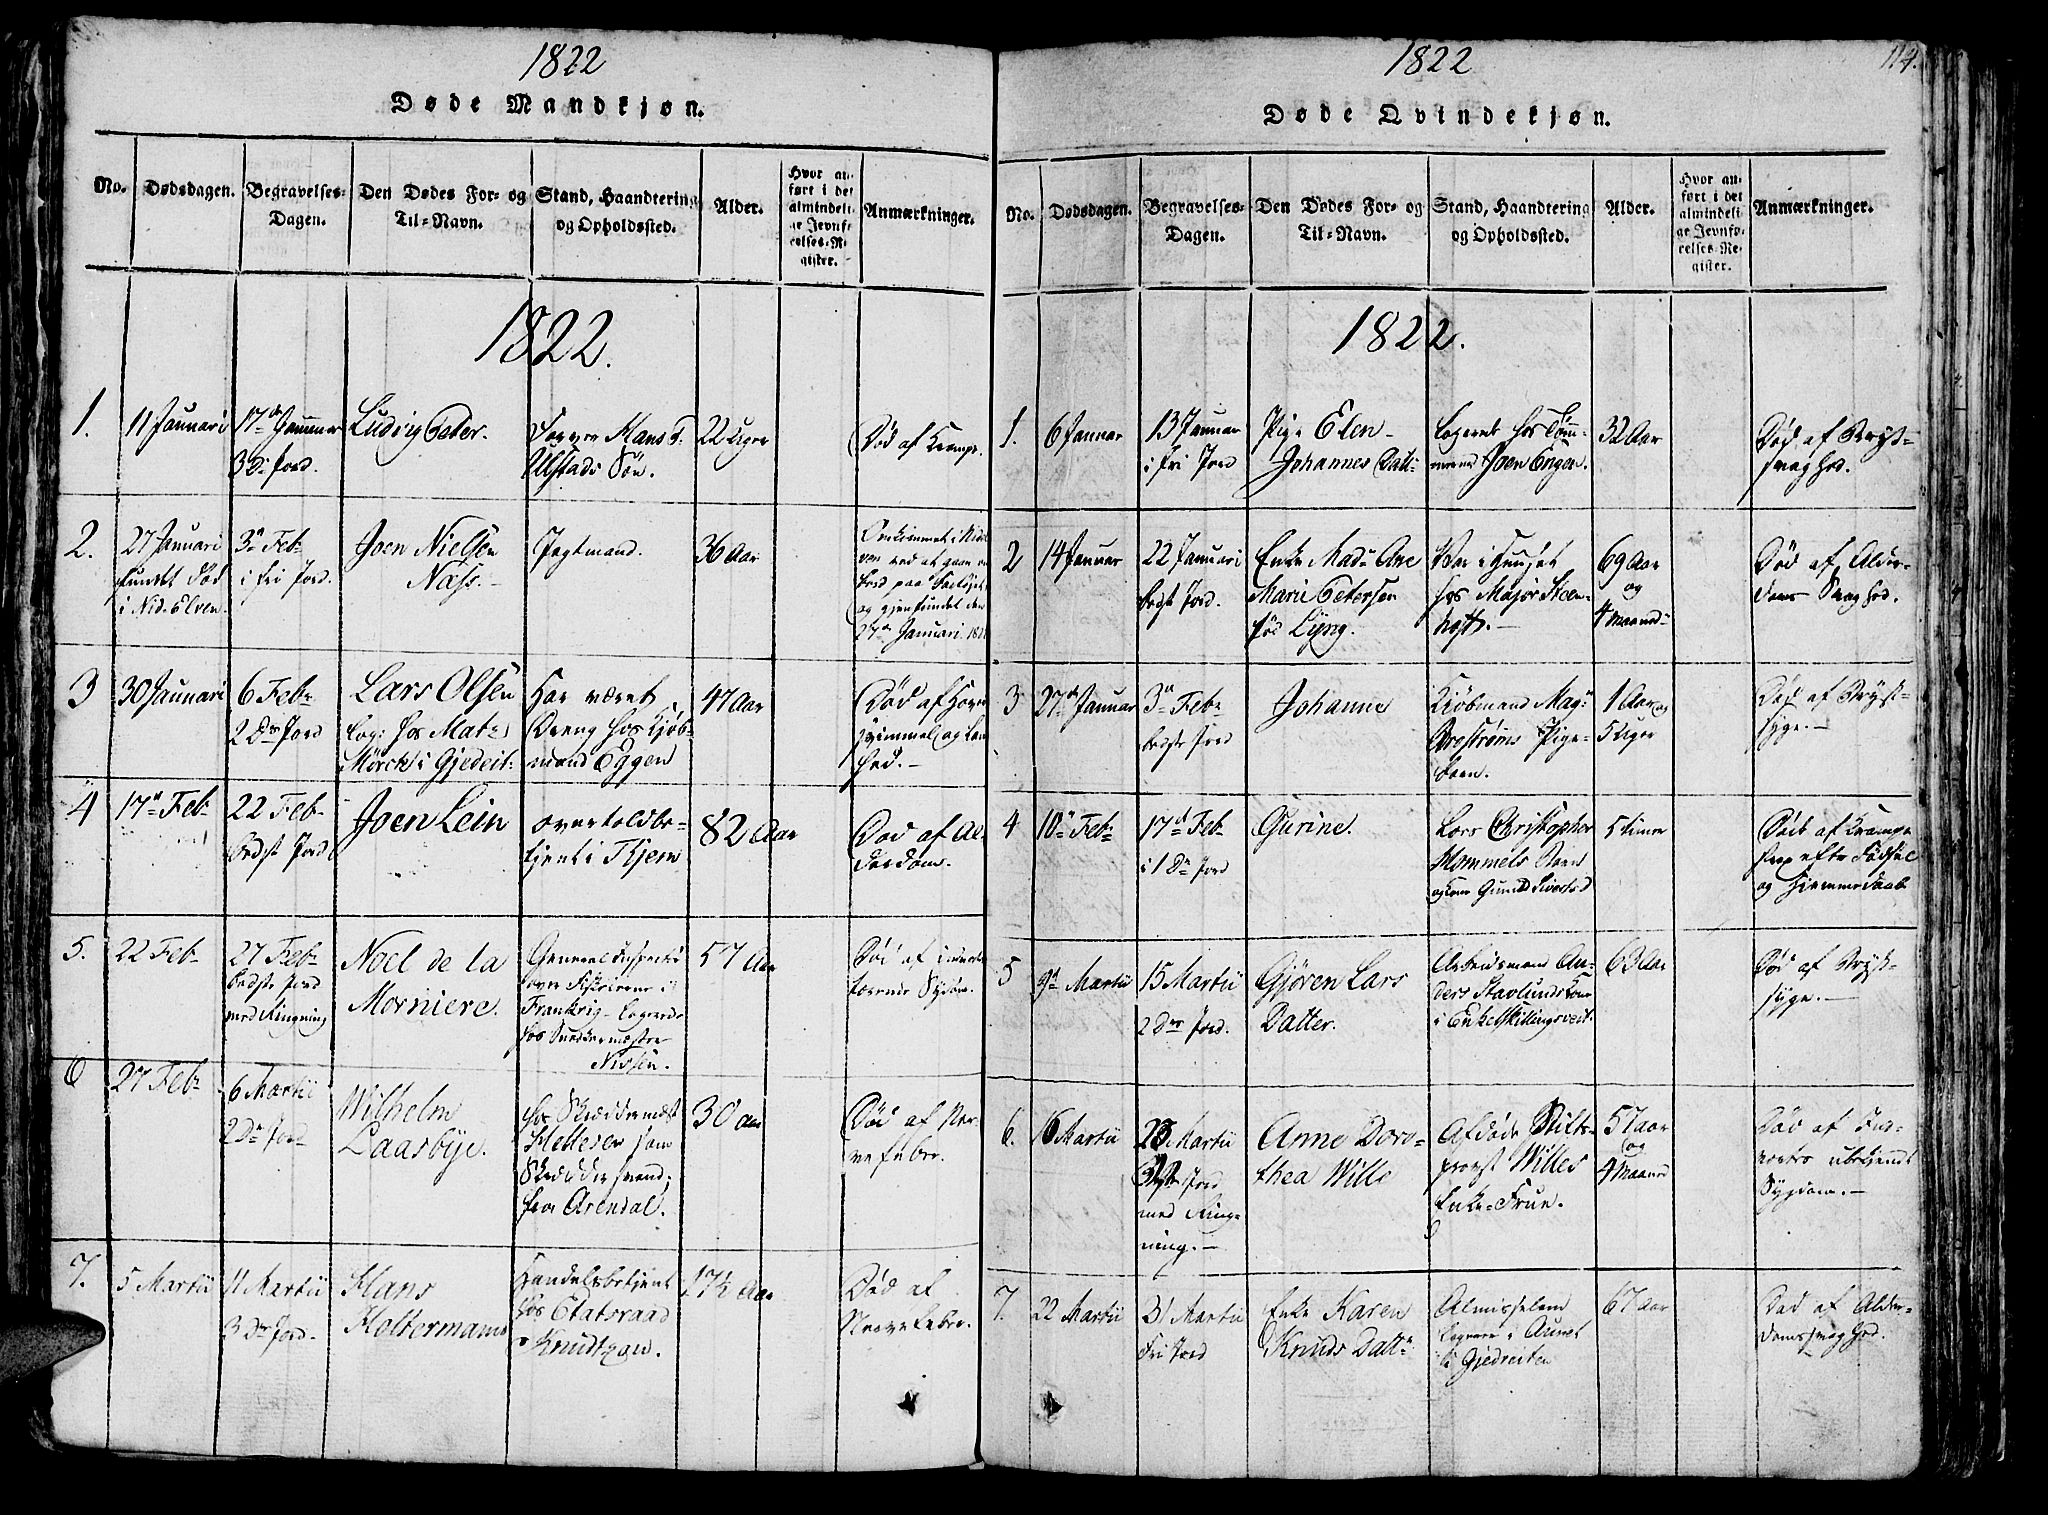 1822
Døde Mandkjøn.
No.
Dødsdagen.
Begravelses-
Dagen.
Den Dødes For- og
Til-Navn.
Stand, Haandtering
og Opholdssted.
Alder.
Hvor an-
ført i det
almindeli-
ge Jevnfø-
relses-Re-
gister.
Anmærkninger.
1822.
1.
11 Januari
17de Januar
3die Jord.
Ludvig Peter.
Hans
Ulstads Søn.
22 Uger
Død af Krampe.
2.
27 Januari
fundet død
i Nid-Elven.
3d Febr
i fri Jord.
Joen Nielsen
Næss.
Jagtmand.
36 Aar
og gjenfundet den
27de Januari 1822
3
30 Januari
6 Febr
2den Jord
Lars Olsen
Log: hos Mat:
Mörch i Gjedveit:
Har været
Dreng hos Kjøb-
mand Eggen
47 Aar
Død af
4
17d Feb
22 Feb
bedst Jord
Joen Lein
overtoldbe-
tjent i Hjem
82 Aar
Død af Al-
derdom.
5.
22 Feb
27 Febr
bedste Jord
med Ringning
Noel de la
Morniere.
General Inspecteur
over Fiskerierne i
Frankrig - Logerede
hos Snedkermester
Nissen.
57 Aar
Død af
6
27 Febr
6 Martii
2den Jord
Wilhelm
Laasbye.
hos Skræddermest
som
Skræddersvend,
fra Arendal.
30 Aar
Død af Ner-
vefeber.
7.
5 Martii
11 Martii
3die Jord.
Hans
Holtermann
Handelsbetjent
hos Etatsraad
Knudtzon.
17½ Aar
Død af
Nervefeber.
1822
114.
Døde Qvindekjøn.
No.
Dødsdagen.
Begravelses-
Dagen.
Den Dødes For- og
Til-Navn.
Stand, Haandtering
og Opholdssted.
Alder.
Hvor an-
ført i det
almindeli-
ge Jevnfø-
relses-Re-
gister.
Anmærkninger.
1822.
1.
6 Januar
13 Januar
i fri Jord
Pige Elen
Johannes Datt:
Logerende hos Tøm-
mermd Joen Engen.
32 Aar
Død af Bryst-
svaghed.
2
14 Januar
22 Januari
bedst Jord.
Enke Mad: Ane
Marie Petersen
föd Lyng.
Var i Huuset
hos Major Steen-
hoff.
69 Aar
og
4 Maaned
Død af Alder-
doms Svaghed.
3
27de Januar
3die Febr
bedste Jord
Johanne
Kiøbmand Mag:
Broströms Pige-
barn.
1 Aar og
5 Uger
Død af Bryst-
syge.
4
10de Febr
17d Feb
i 1 De Jord
Gurine.
Lars Christopher
Mommels Barn
og Kone Guned Sivertsd
5 timer
Død af Krampe
strax efter Fødsel
og Hjemmedaab
5
9d Martii
15 Martii
2den Jord.
Gjören Lars
Datter.
Arbeidsmand An-
ders Stavlunds Kone
i Enkeltskillingsveit.
63 Aar
Død af Bryst-
syge.
6.
16 Martii
23 Martii
Jord
med Ring-
ning.
Anne Doro-
thea Wille
Afdøde Stifts-
provst Willes
Enke-Frue.
57 Aar
og
4 Maaned
Død af For-
ubekjendt
Sygdom.
7.
22 Martii
31 Martii
Fri Jord
Enke Karen
Knuds Datt:
Almisselem
i Gjedveiten
67 Aar
Død af Alder-
domssvaghed.